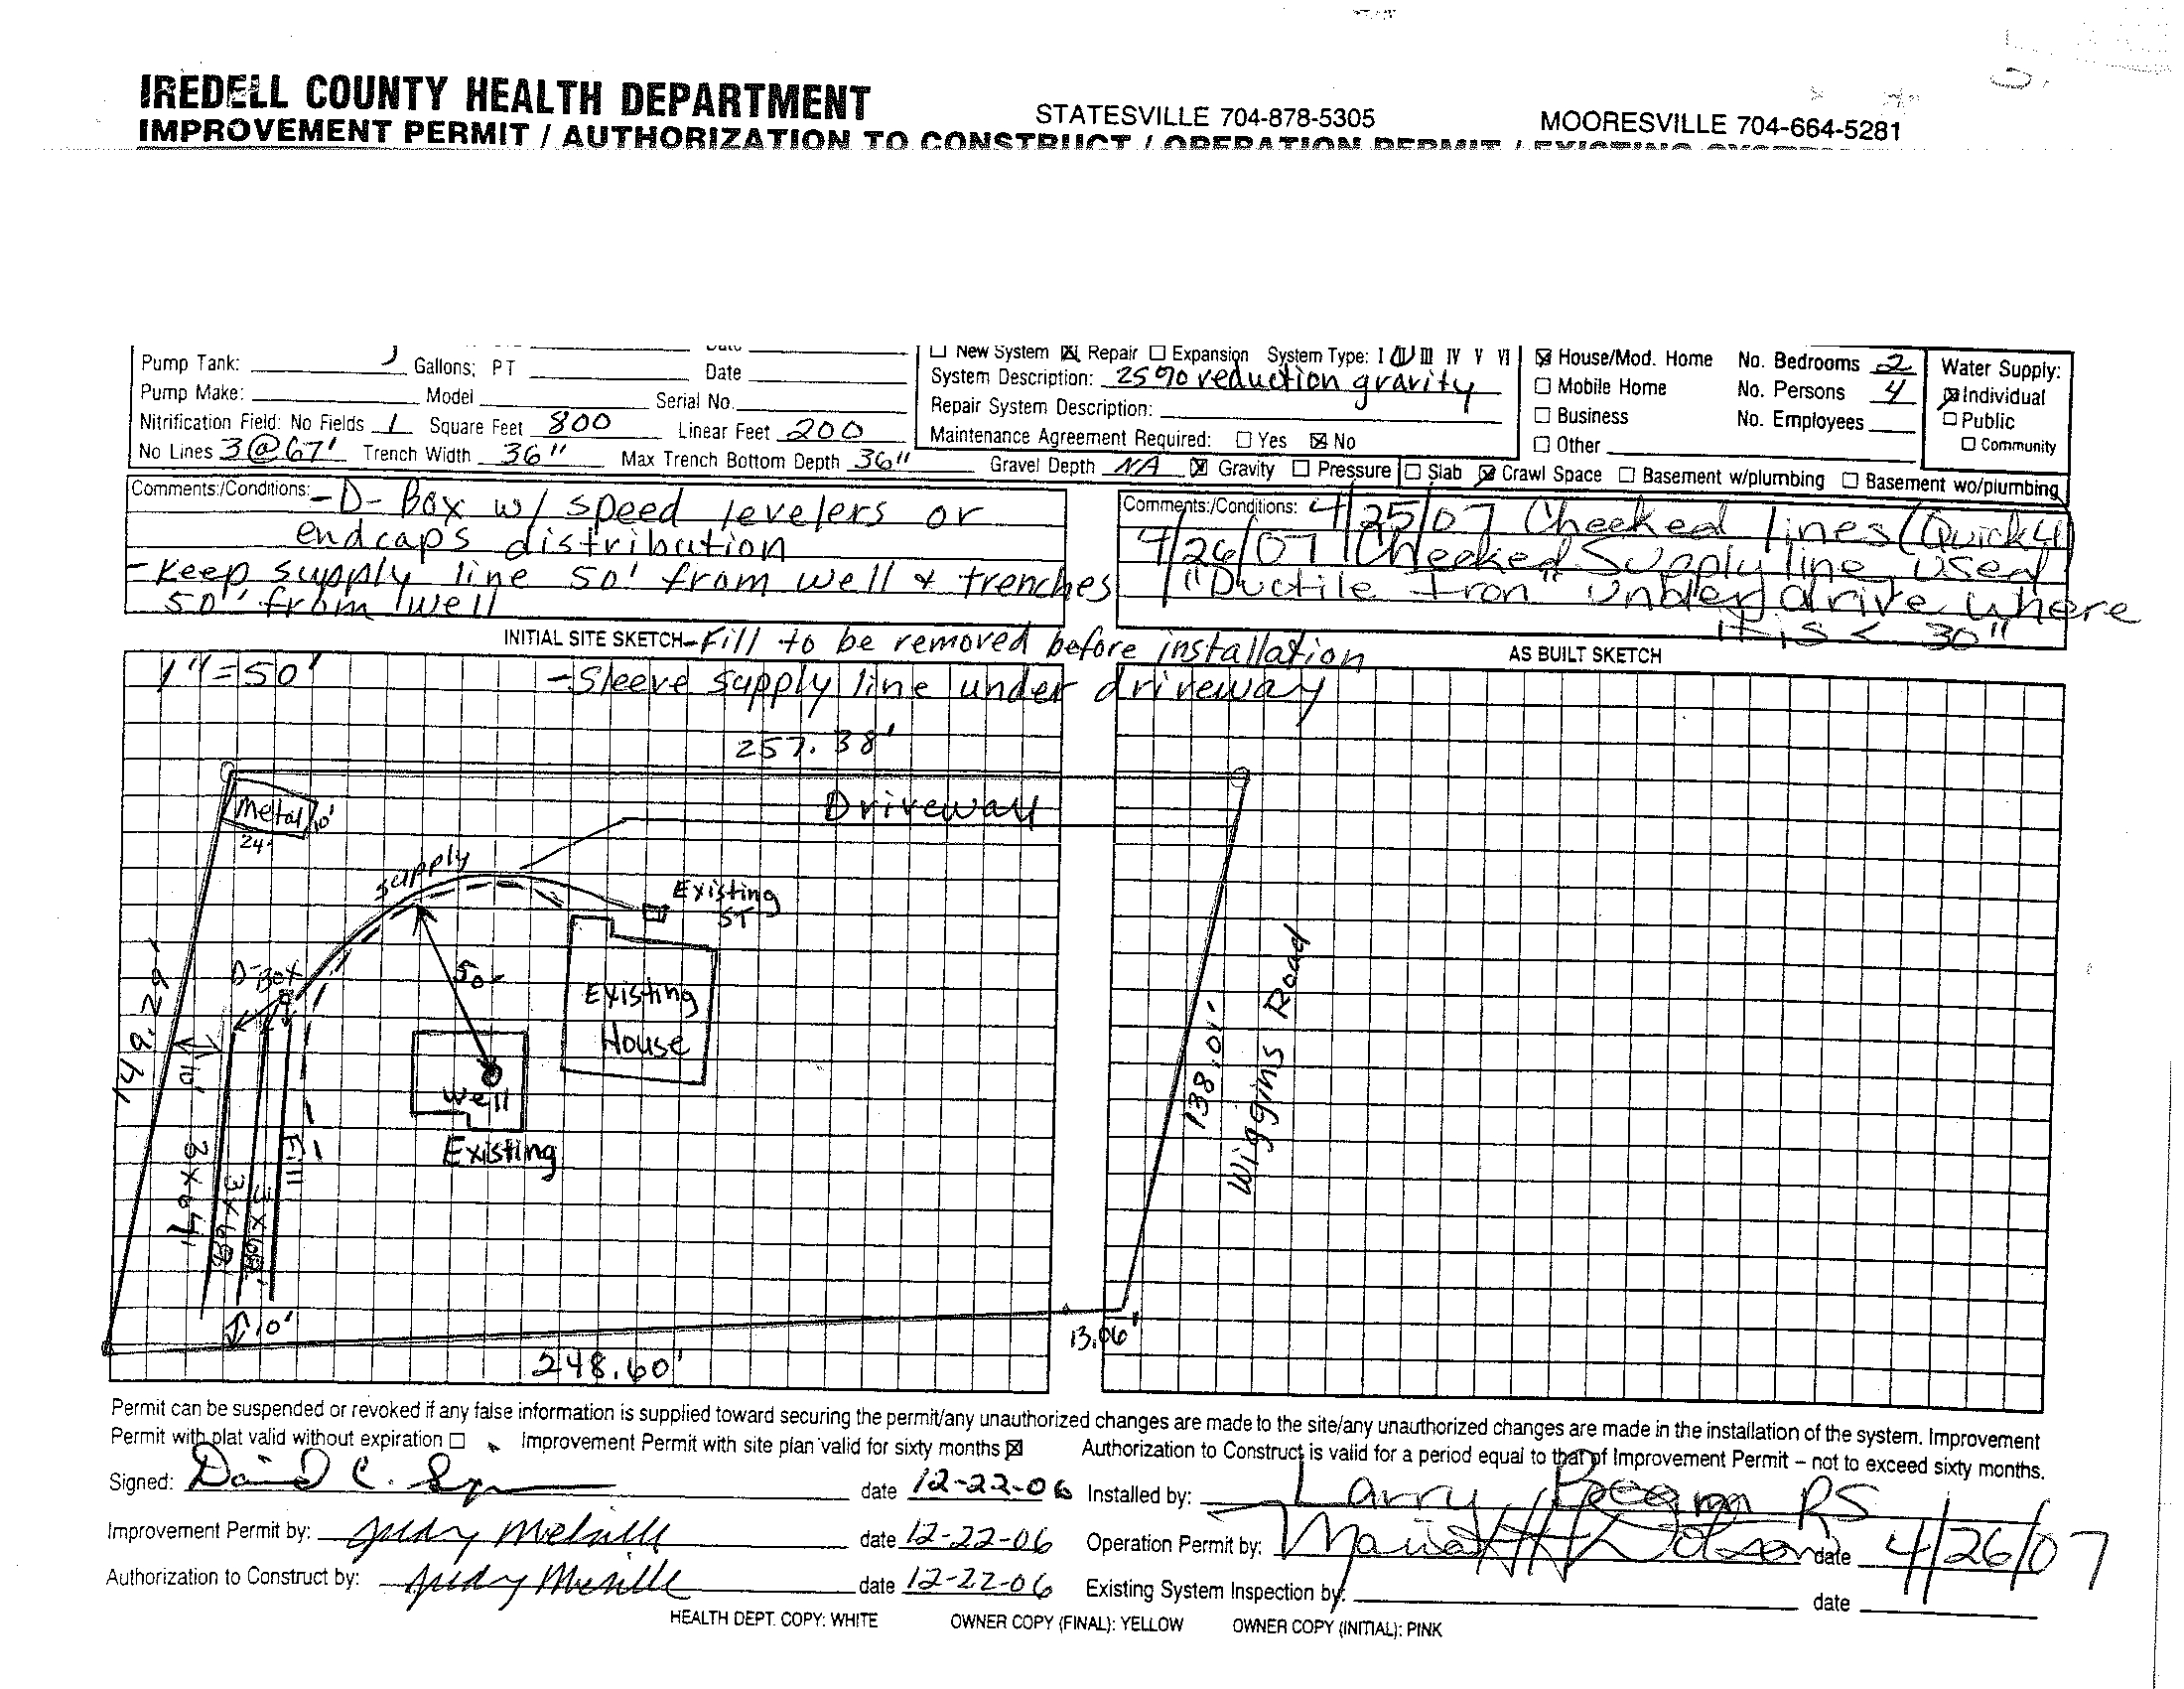 IREDELL COUNTY HEALTH DEPARTMENT
STATESVILLE 704-878-5305
MOORESVILLE 704-664-5281
IMPROVEMENT PERMIT / AUTHORIZATION TO CONSTRUCT / OPERATION PERMIT / EXISTING
Pump Tank: Gallons; PT Date
☐ New System ☒ Repair ☐ Expansion System Type: I II III IV V VI
☒ House/Mod. Home No. Bedrooms 2
Water Supply:
Pump Make: Model Serial No.
System Description: 25% reduction gravity
☐ Mobile Home No. Persons 4
☒ Individual
Nitrification Field: No Fields 1 Square Feet 800 Linear Feet 200
Repair System Description:
☐ Business No. Employees
☐ Public
No Lines 3@67' Trench Width 36" Max Trench Bottom Depth 36"
Maintenance Agreement Required: ☐ Yes ☒ No
☐ Other
☐ Community
Gravel Depth NA ☒ Gravity ☐ Pressure ☐ Slab ☒ Crawl Space ☐ Basement w/plumbing ☐ Basement wo/plumbing
Comments:/Conditions: - D-Box w/ speed levelers or
endcaps distribution
- Keep supply line 50' from well & trenches
50' from well
Comments:/Conditions: 4/25/07 Checked lines (Quick 4)
4/26/07 Checked Supply line, used
"Ductile Iron" under drive where
it is < 30"
INITIAL SITE SKETCH - Fill to be removed before installation
AS BUILT SKETCH
1"=50'
- Sleeve supply line under driveway
257.38'
Metal 10'
24'
Driveway
supply
Existing
ST
D-Box
50'
Existing
House
149.29'
10'
Well
Existing
Fill
3x67'
3x68'
3x68'
10'
248.60'
13.06'
138.01'
Wiggins Road
Permit can be suspended or revoked if any false information is supplied toward securing the permit/any unauthorized changes are made to the site/any unauthorized changes are made in the installation of the system. Improvement
Permit with plat valid without expiration ☐ Improvement Permit with site plan valid for sixty months ☒ Authorization to Construct is valid for a period equal to that of Improvement Permit – not to exceed sixty months.
Signed: David C. date 12-22-06 Installed by: Larry RS
Improvement Permit by: date 12-22-06 Operation Permit by: date 4/26/07
Authorization to Construct by: date 12-22-06 Existing System Inspection by: date
HEALTH DEPT. COPY: WHITE OWNER COPY (FINAL): YELLOW OWNER COPY (INITIAL): PINK